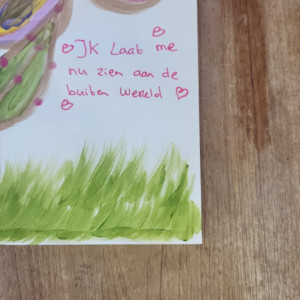 Ik Laat me
nu zien aan de
buiten wereld